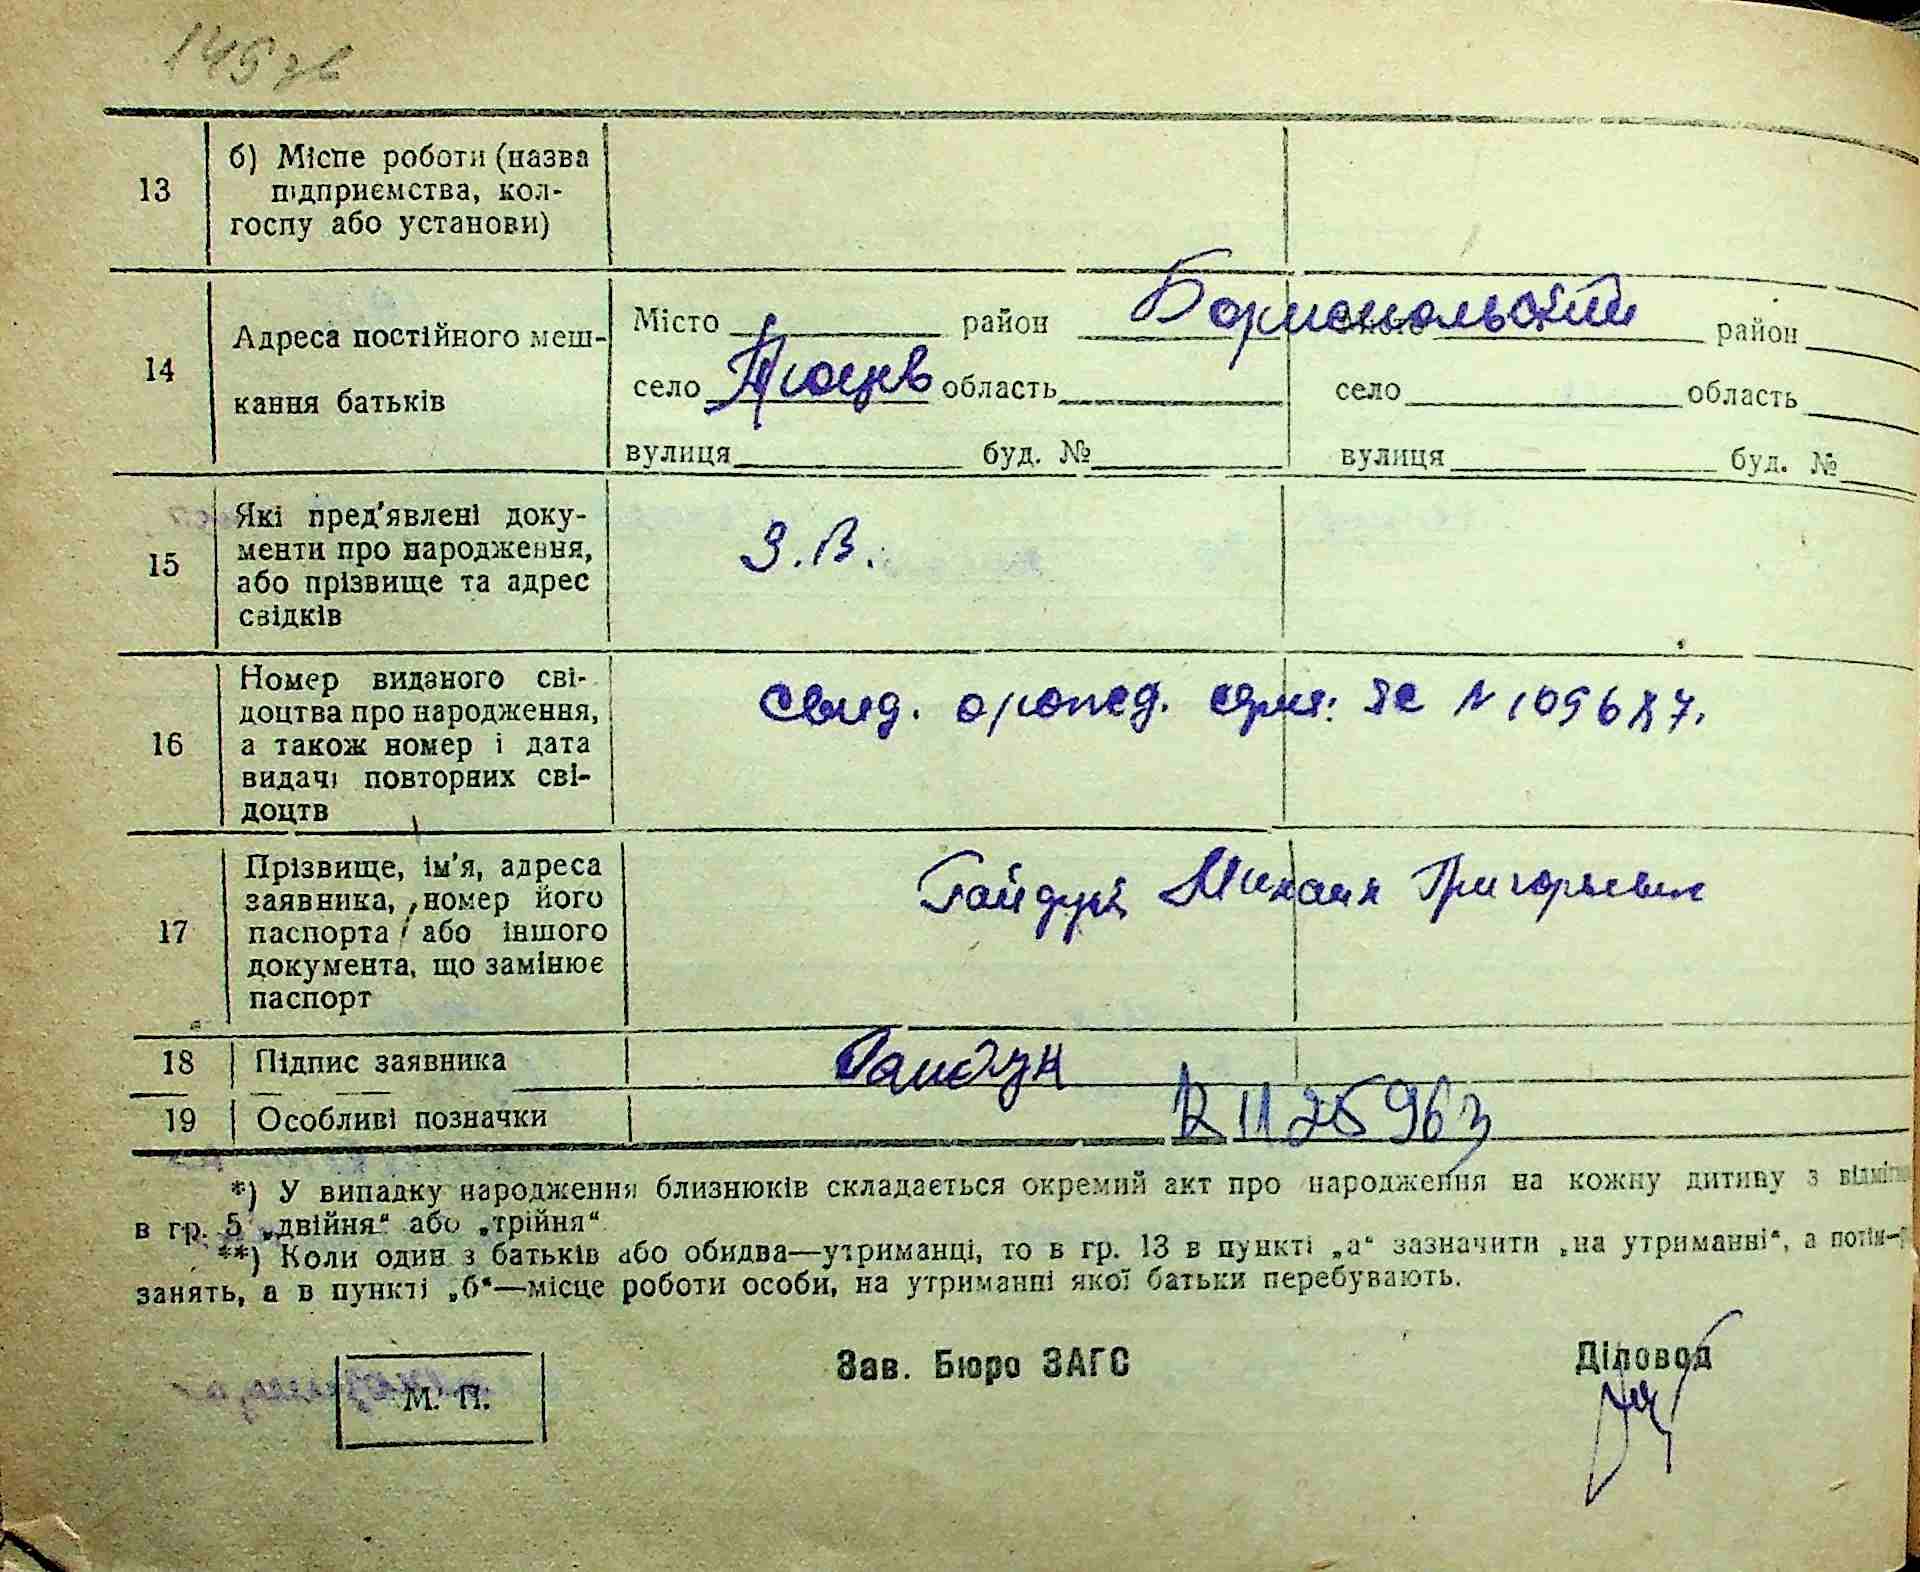 145 зв
13 б) Місце роботи (назва
підприємства, кол-
госпу або установи)
14 Адреса постійного меш-
кання батьків
Місто район Бориспольский район
село область село область
вулиця буд. № вулиця буд. №
15 Які пред'явлені доку-
менти про народження,
або прізвище та адрес
свідків
З.В.
16 Номер виданого сві-
доцтва про народження,
а також номер і дата
видачі повторних сві-
доцтв
свид. о рожд. N 109687.
17 Прізвище, ім'я, адреса
заявника, номер його
паспорта або іншого
документа, що замінює
паспорт
Гайдук Михаил Григорьевич
18 Підпис заявника Гайдук
19 Особливі позначки 1125963
*) У випадку народження близнюків складається окремий акт про народження на кожну дитину з відміт
в гр. 5 „двійня“ або „трійня“
**) Коли один з батьків або обидва—утриманці, то в гр. 13 в пункті „а“ зазначити „на утриманні“, а потім—р
занять, а в пункті „б“—місце роботи особи, на утриманні якої батьки перебувають.
Зав. Бюро ЗАГС Діловод
М. П.